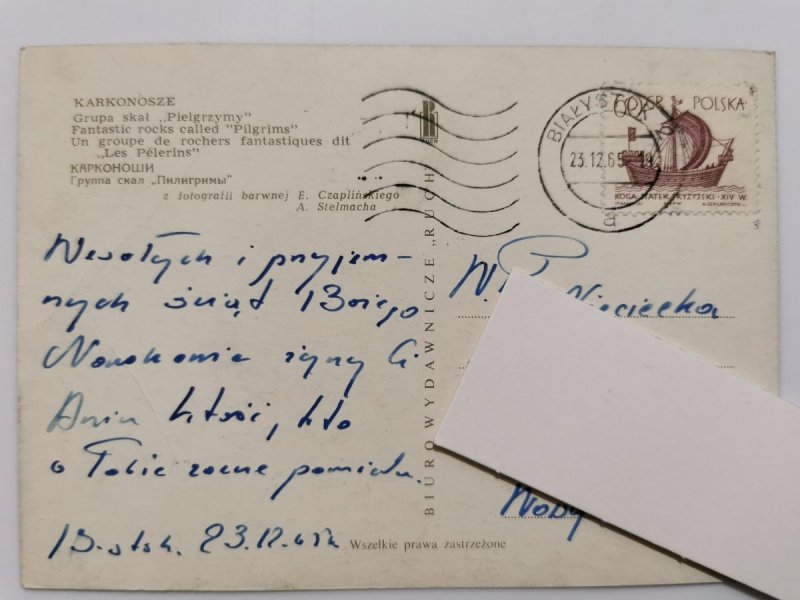 KARKONOSZE
Grupa skał „Pielgrzymy"
Fantastic rocks called "Pilgrims"
Un groupe de rochers fantastiques dit
„Les Pélerins"
КАРКОНОШИ
Группа скал „Пилигримы"
z fotografii barwnej E. Czaplińskiego
A. Stelmacha
Wesołych i przyjem-
nych świąt Bożego
Narodzenia życzy Ci
Ania ktoś, kto
o Tobie zawsze pamięta.
B-stok. 23.12.65r
Wszelkie prawa zastrzeżone
BIURO WYDAWNICZE „RUCH"
BIAŁYSTOK
23.12.65
a
60 GR POLSKA
KOGA-STATEK KRZYŻ.-XIV W.
W.P. Nieciecka